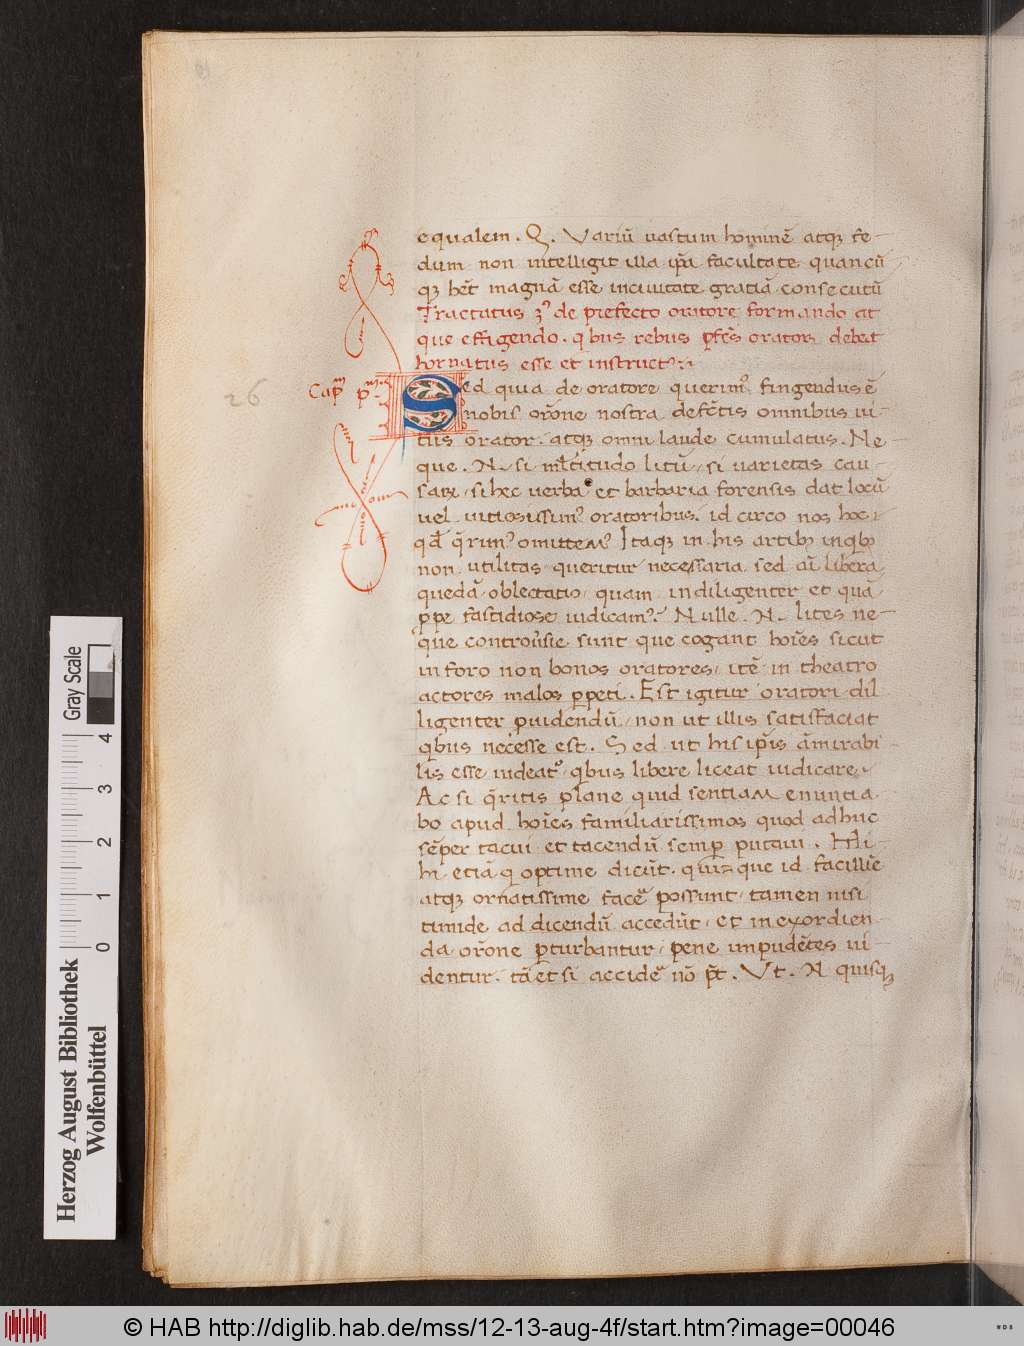 equalem. Q. Variū uastum hominē atqꝫ fe-
dum non intelligit illa ip̄a facultate quancū
qꝫ hēt magnā esse in ciuitate gratiā consecutū
Tractatus 3ˢ de prefecto oratore formando at
que effigendo. qbus rebus ꝑfc̄s orator debeat
hornatus esse et instructꝰ
Cap̄m pm̄
Sed quia de oratore querimꝰ fingendus ē
nobis or̄one nostra defectis omnibus ui-
tiis orator. atqꝫ omni laude cumulatus. Ne
que. N. si ml̄titudo litiū, si uarietas cau-
saꝝ, si hec uerba et barbaria forensis dat locū
uel uitiosissimꝰ oratoribus. id circo nos hoc
qđ q̄rimꝰ omittemꝰ Itaqꝫ in his artibꝫ in qbꝫ
non utilitas queritur necessaria sed ai libera
quedā oblectatio, quam indiligenter et quā
ꝓpe fastidiose iudicamꝰ. Nulle. N. lites ne-
que controūsie sunt que cogant hoīes sicut
in foro non bonos oratores, itē in theatro
actores malos ꝑpeti. Est igitur oratori dil
ligenter ꝓuidendū, non ut illis satisfaciat
qbus necesse est. Sed ut his ip̄is āmirabi
lis esse uideatꝰ, qbus libere liceat iudicare
Ac si q̄ritis plane quid sentiam enuntia
bo apud hoīes familiarissimos quod adhuc
sēper tacui et tacendū semꝑ putaui. Mi
hi etiā q optime dicūt. quiqꝫ que id facillīe
atqꝫ ornatissime facē possunt, tamen nisi
timide ad dicendū accedūt, et in exordien-
da or̄one ꝑturbantur, pene impudētes ui-
dentur. tā et si accidē nō pt̄. Ut. N quisqꝫ
26
Gray Scale
0 1 2 3 4
Herzog August Bibliothek
Wolfenbüttel
© HAB http://diglib.hab.de/mss/12-13-aug-4f/start.htm?image=00046